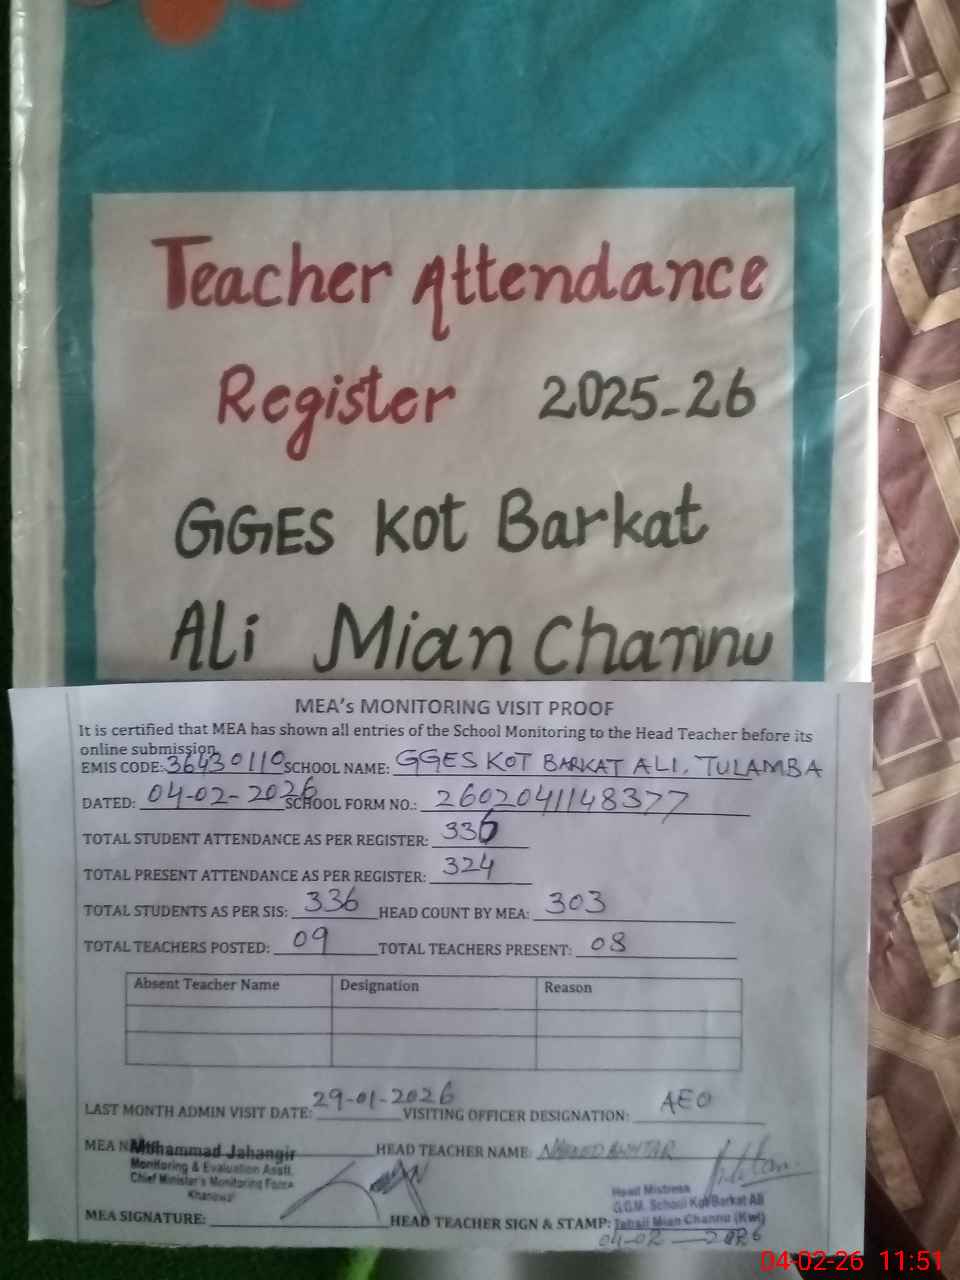 Teacher Attendance
Register 2025-26
GGES Kot Barkat
Ali Mian Channu
MEA's MONITORING VISIT PROOF
It is certified that MEA has shown all entries of the School Monitoring to the Head Teacher before its
online submission.
EMIS CODE: 36430110 SCHOOL NAME: GGES KOT BARKAT ALI, TULAMBA
DATED: 04-02-2026 SCHOOL FORM NO.: 2602041148377
TOTAL STUDENT ATTENDANCE AS PER REGISTER: 336
TOTAL PRESENT ATTENDANCE AS PER REGISTER: 324
TOTAL STUDENTS AS PER SIS: 336 HEAD COUNT BY MEA: 303
TOTAL TEACHERS POSTED: 09 TOTAL TEACHERS PRESENT: 08
Absent Teacher Name Designation Reason
LAST MONTH ADMIN VISIT DATE: 29-01-2026 VISITING OFFICER DESIGNATION: AEO
MEA Muhammad Jahangir HEAD TEACHER NAME:
Monitoring & Evaluation Asstt.
Chief Minister's Monitoring Force
Khanewal
Head Mistress
G.G.M. School Kot Barkat Ali
MEA SIGNATURE: HEAD TEACHER SIGN & STAMP: Tehsil Mian Channu (Kwl)
04-02-2026
04-02-26 11:51